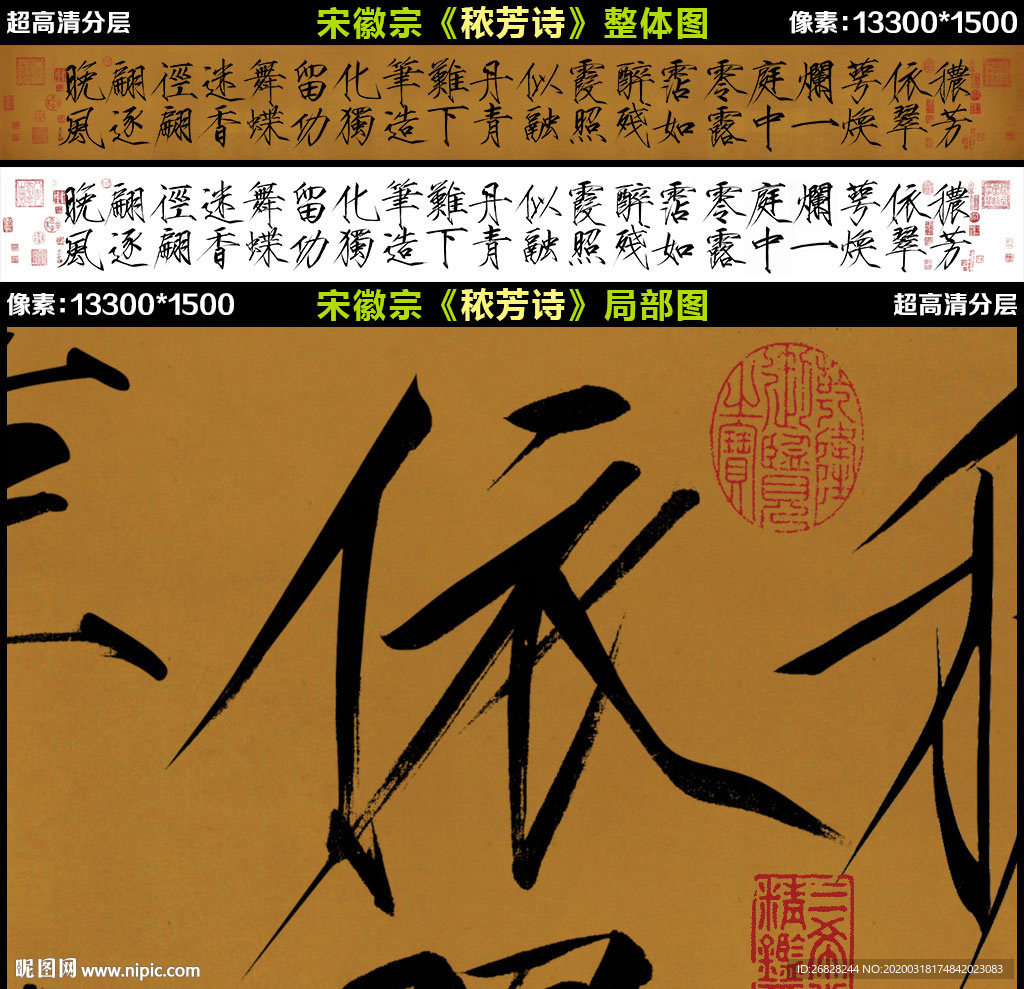 超高清分层
宋徽宗《秾芳诗》整体图
像素:13300*1500
穠芳
依翠
萼焕
爛一
庭中
零露
霑如
醉殘
霞照
似融
丹青
難下
筆造
化獨
留功
舞蝶
迷香
徑翩
翩逐
晚風
穠芳
依翠
萼焕
爛一
庭中
零露
霑如
醉殘
霞照
似融
丹青
難下
筆造
化獨
留功
舞蝶
迷香
徑翩
翩逐
晚風
像素:13300*1500
宋徽宗《秾芳诗》局部图
超高清分层
依
乾隆
御覽
之寶
三希
精鑑
昵图网 www.nipic.com
ID:26828244 NO:20200318174842023083